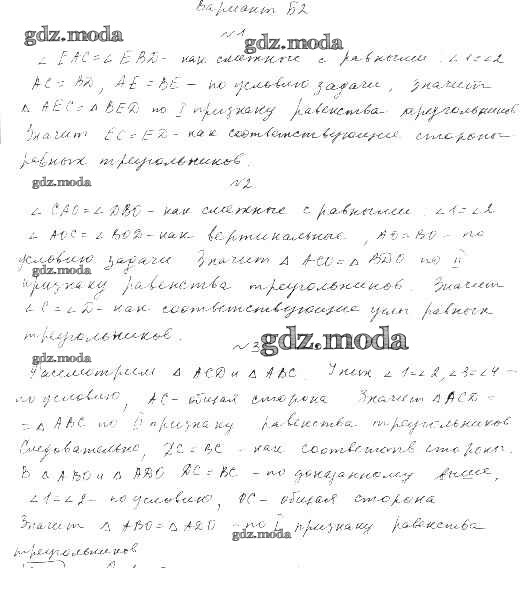 Вариант Б2
gdz.moda
№1
∠EAC=∠EBD - как смежные с равными. ∠1=∠2
AC=BD, AE=BE - по условию задачи, значит
△AEC=△BED по I признаку равенства треугольников
Значит EC=ED - как соответствующие стороны
равных треугольников.
gdz.moda
№2
∠CAO=∠DBO - как смежные с равными. ∠1=∠2
∠AOC=∠BOD - как вертикальные, AO=BO - по
условию задачи Значит △ACO=△BDO по II
gdz.moda
признаку равенства треугольников. Значит
∠C=∠D - как соответствующие углы равных
треугольников.
№3
gdz.moda
gdz.moda
Рассмотрим △ACD и △ABC. У них ∠1=∠2, ∠3=∠4 -
по условию, AC - общая сторона Значит △ACD=
=△ABC по II признаку равенства треугольников
Следовательно, DC=BC - как соответств стороны.
В △ABO и △ADO DC=BC - по доказанному выше,
∠1=∠2 - по условию, OC - общая сторона
Значит △ABO=△ADO - по I признаку равенства
gdz.moda
треугольников